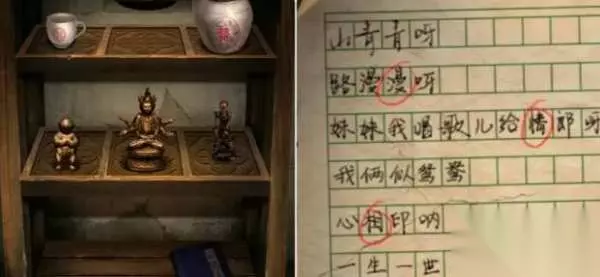 山青青呀
路漫漫呀
妹妹我唱歌儿给情郎呀
我俩似鸳鸯
心相印呐
一生一世